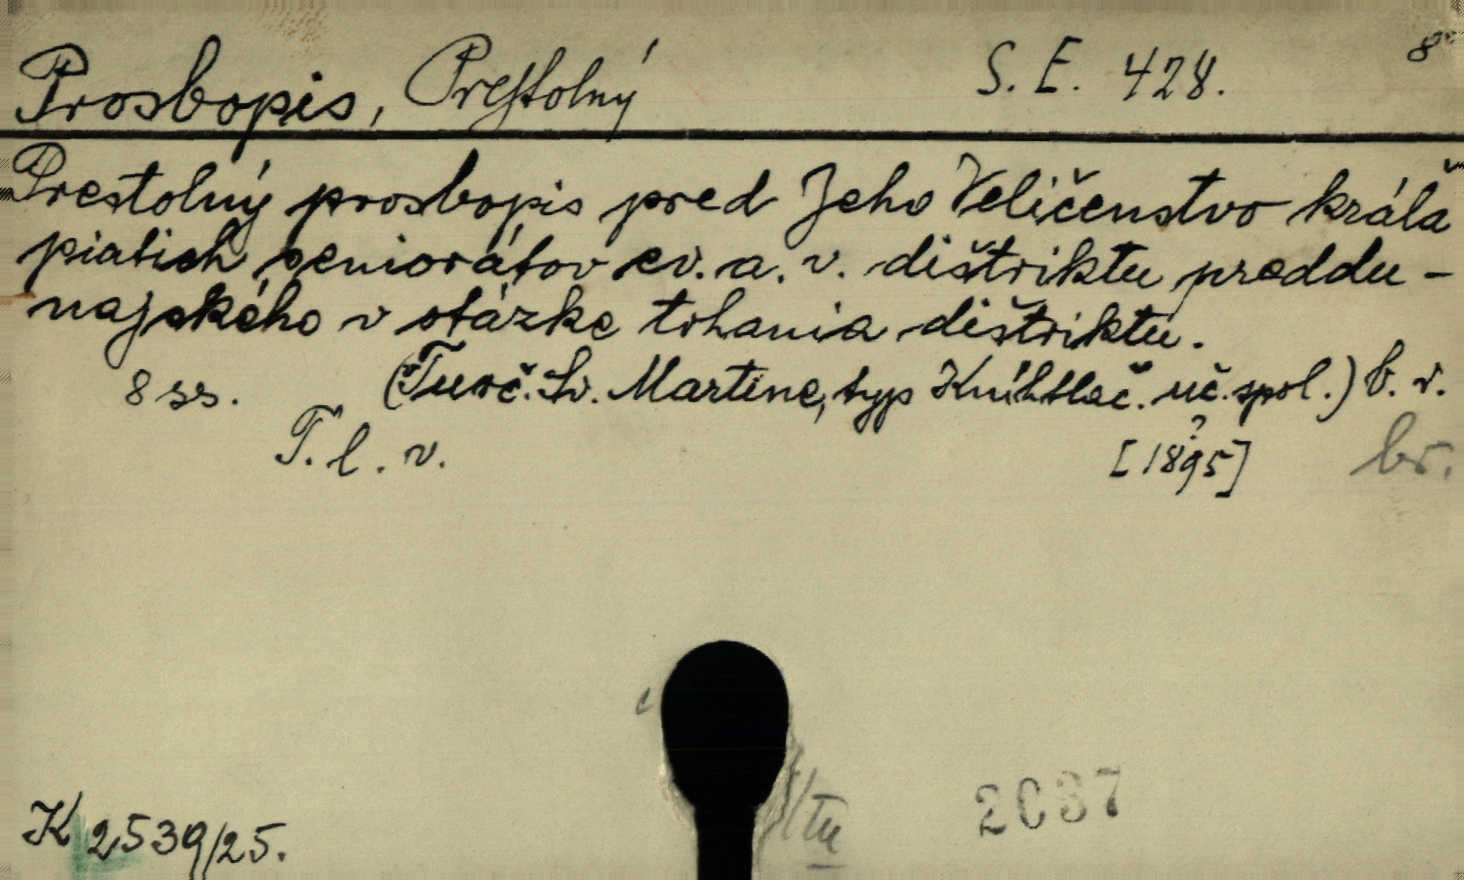 Prosbopis, Prestolný S. E. 428. 8°
Prestolný prosbopis pred Jeho Veličenstvo kráľa
piatich seniorátov ev. a. v. dištriktu preddu-
najského v otázke trhania dištriktu.
8 ss. (Turč. Sv. Martine, typ Kníhtlač. uč. spol.) b. r.
T. l. v. [1895?] br.
tu
2037
K 2539/25.